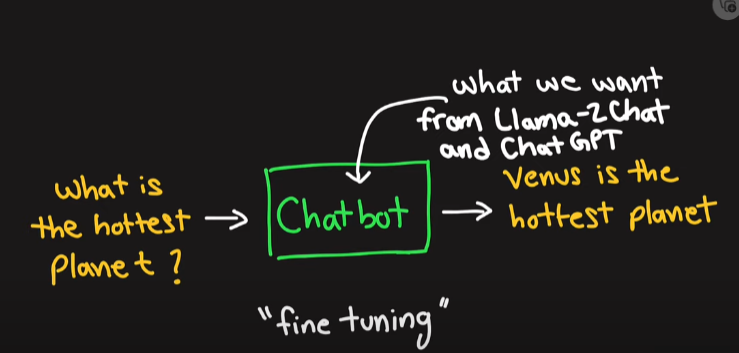 what we want
from Llama-2 Chat
and Chat GPT
What is
the hottest
Planet?
Chatbot
Venus is the
hottest planet
"fine tuning"